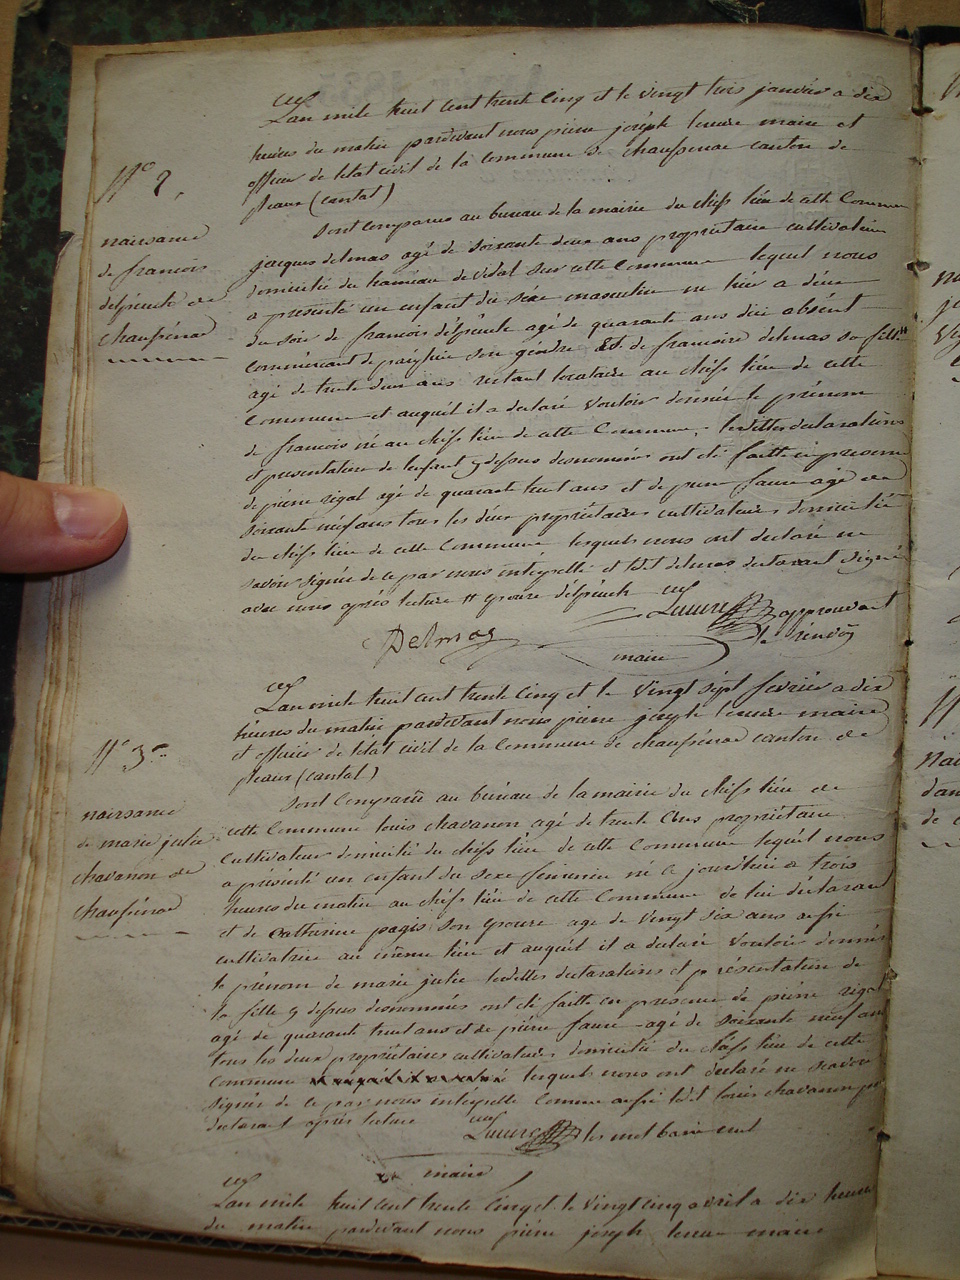 L'an mile huit cent trente Cinq et le Vingt trois janvier a dix
heures du matin pardevant nous pierre joseph lemire maire et
officier de létat civil de la Commune de chaussenac canton de
pleaux (cantal)
N° 2,
naissance
de francois
de chaussénac
Sont Comparus au bureau de la mairie du cheff lieu de cette Commune
jacques delmas agé de Soixante deux ans propriétaire cultivateur
domicilié du hameau de Vidal Sur cette Commune lequel nous
a présenté un enfant du séxe masculin né hier a deux
du soir de francois délpeuch agé de quarante ans dici absent
Commércant de son géndre Et de francoise delmas sa fille
agé de trente deux ans restant locataire au cheff lieu de cette
Commune et auquél il a declaré Vouloir donnér le prénom
de francois né au cheff lieu de cette Commune, lesdittes declarations
et presentation de lenfant y dessus desnommés ont eté faitte en presence
de pierre rigal agé de quarante huit ans et de pierre faure agé de
Soixante néuf ans tous les déux propriétaires cultivateurs domiciliés
du cheff lieu de cette Commune lesquels nous ont declaré ne
savoir signér de ce par nous intérpellé et ledit delmas declarant signé
avec nous aprés lecture # epouse délpeuch
Delmas
approuvant
le rénvoy
maire
L'an mile huit cent trente Cinq et le Vingt sépt févriér a dix
héures du matin pardevant nous piérre joseph lemire maire
et officiér de létat civil de la Commune de chaussénac canton de
pleaux (cantal)
N° 3
naissance
de marie julie
chavanon de
chaussénac
Sont Comparu au buréau de la mairie du cheff lieu de
cette Commune louis chavanon agé de trente ans propriétaire
Cultivateur domicilié du cheff lieu de cette Commune lequél nous
a présénté un enfant du séxe féminin né ce jourdhui a trois
heures du matin au cheff lieu de cette Commune de lui déclarant
et de Catherine pagis son epouse agé de Vingt six ans aussi
cultivatrice au même lieu et auquél il a declaré Vouloir donnér
le prénom de marie julie lesdittes declarations et présentation de
la fille y dessus desnommés ont eté faitte en presence de piérre rigal
agé de quarante huit ans et de piérre faure agé de Soixante neuf ans
tous les deux propriétaires cultivateurs domicilié du cheff lieu de cette
Commune lesquels nous ont declaré ne scavoir
signér de ce par nous intérpellé Comme aussi ledit louis chavanon
declarant aprés lecture
maire
L'an mile huit cent trente Cinq et le Vingt cinq avril a dix heures
du matin pardevant nous piérre joseph lemire maire